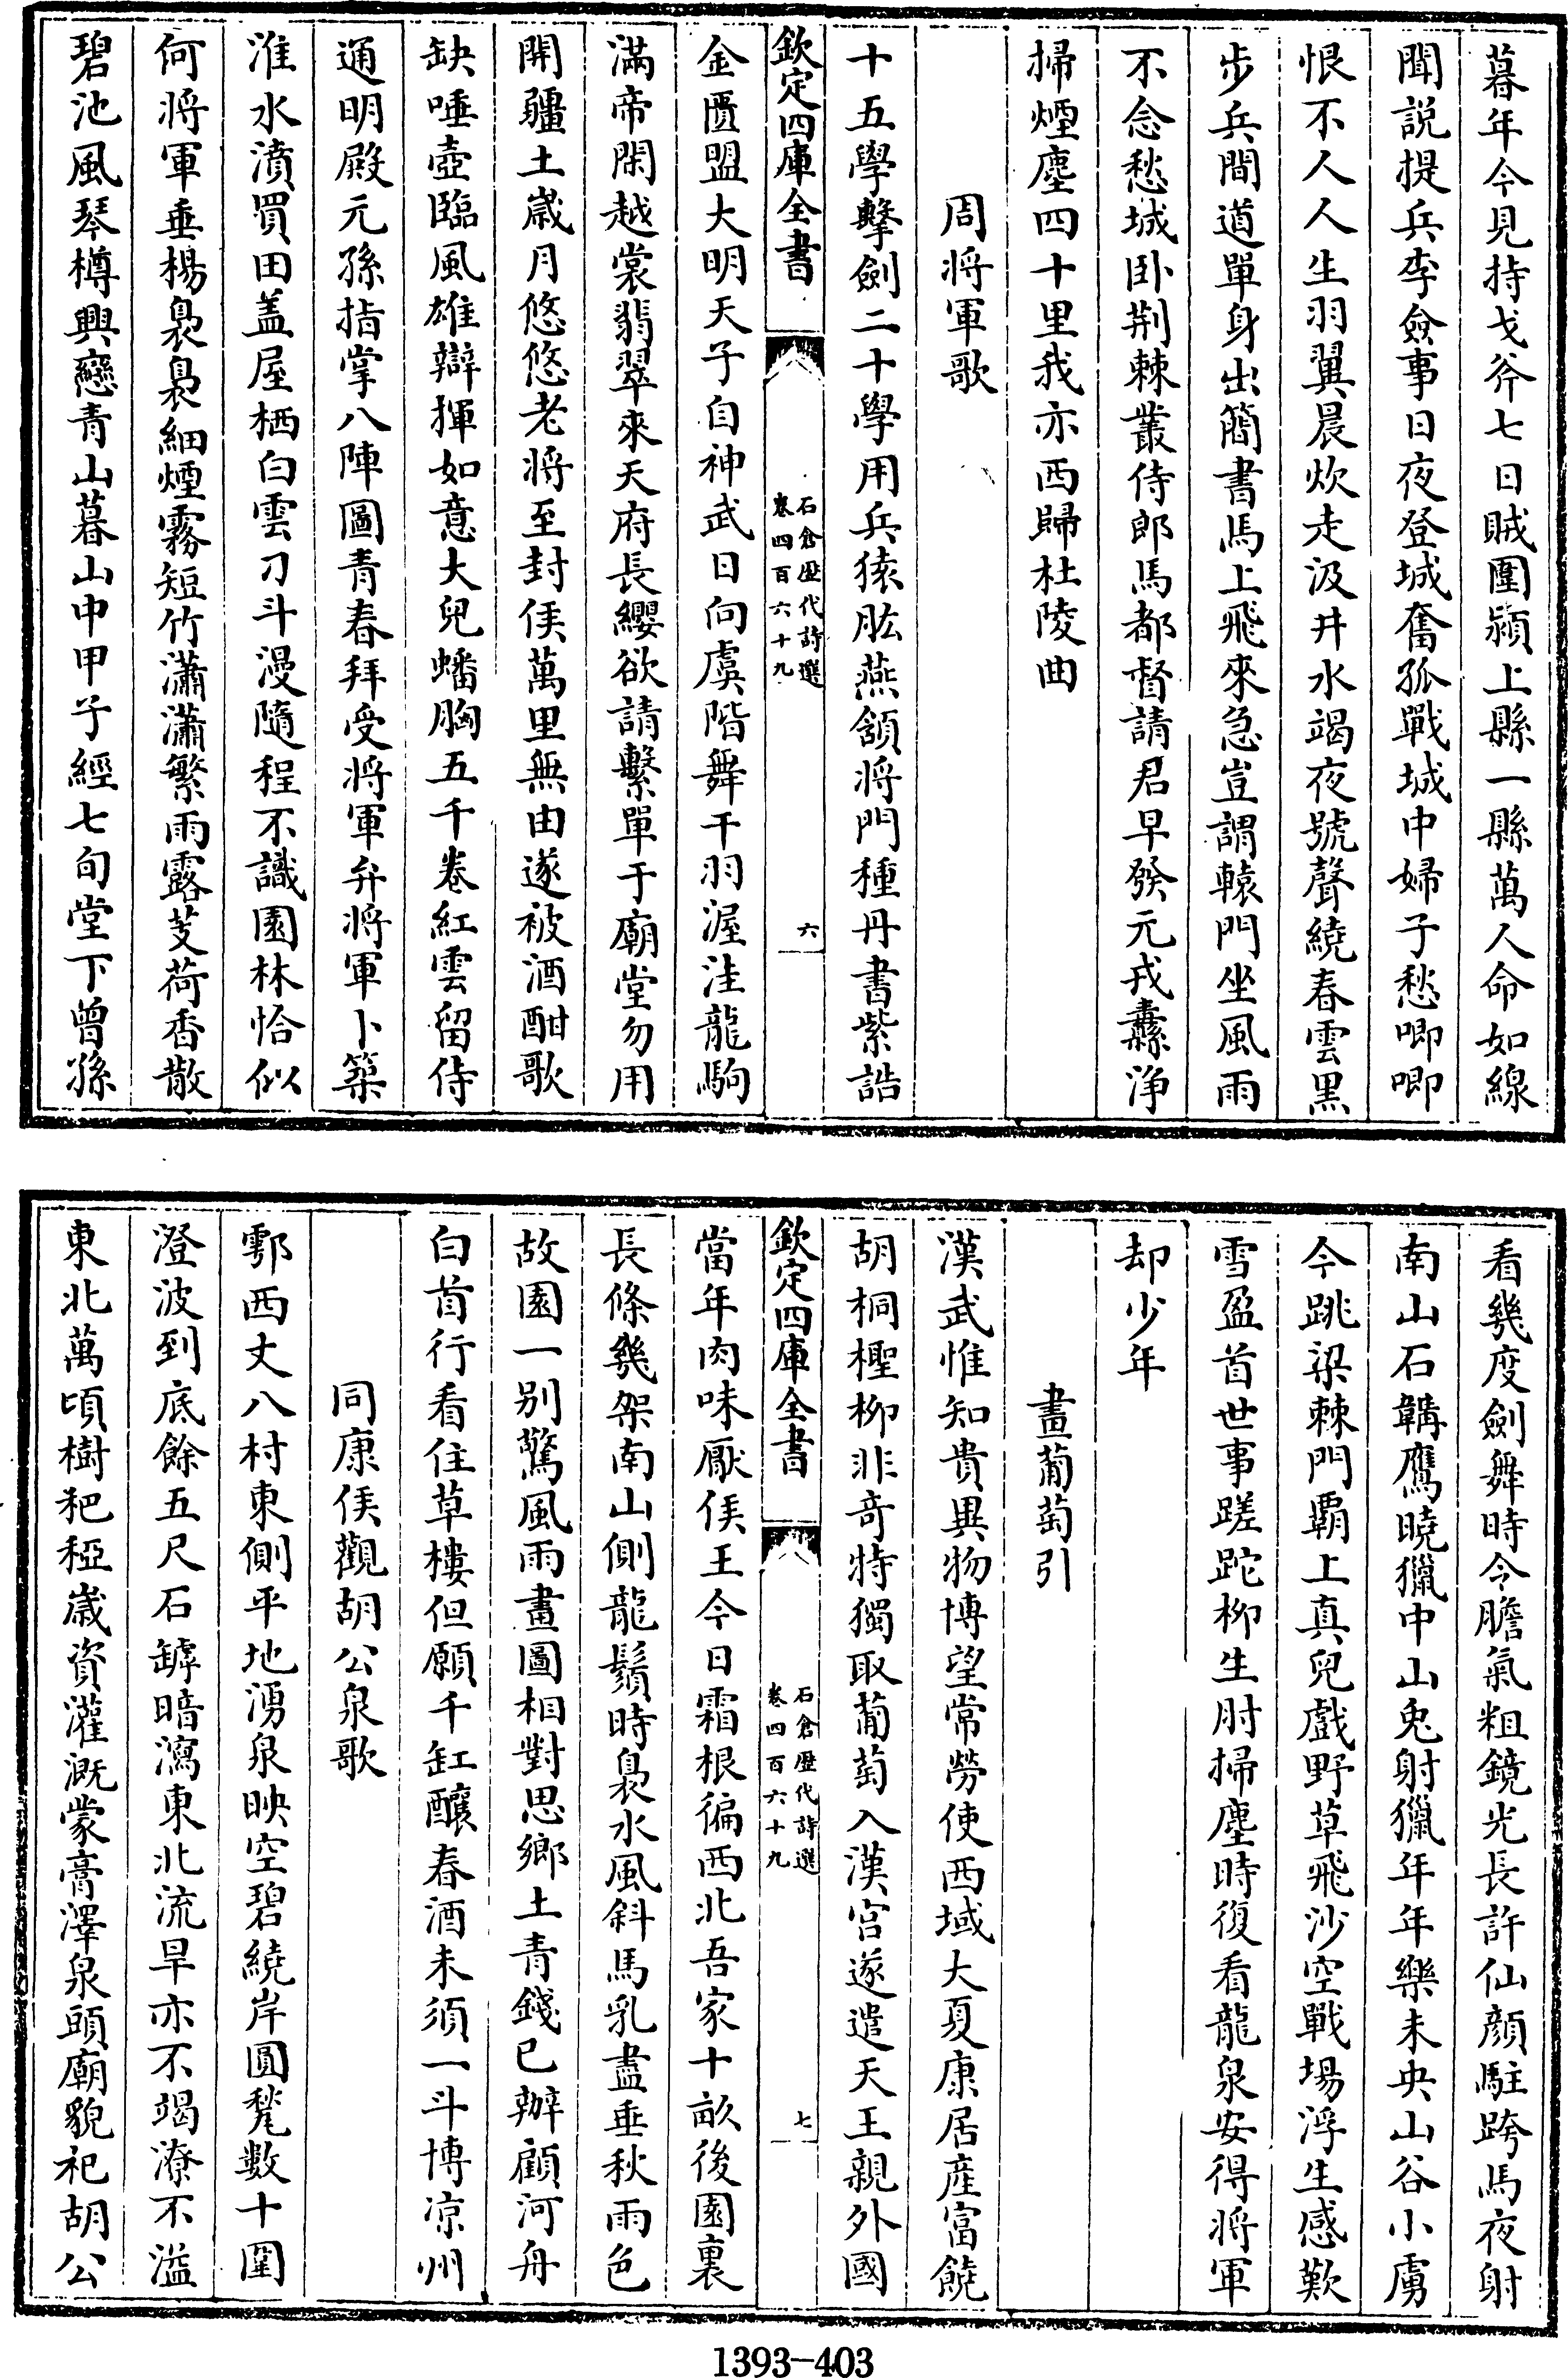 暮年今見持戈斧七日賊圍潁上縣一縣萬人命如線
聞説提兵李僉事日夜登城奮孤戰城中婦子愁唧唧
恨不人人生羽翼晨炊走汲井水竭夜號聲繞春雲黒
步兵間道單身出簡書馬上飛來急豈謂轅門坐風雨
不念愁城卧荆棘叢侍郎馬都督請君早發元戎纛淨
掃煙塵四十里我亦西歸杜陵曲
周將軍歌
十五學擊劍二十學用兵猿肱燕頷將門種丹書紫誥
欽定四庫全書
石倉歴代詩選
卷四百六十九
六
金匱盟大明天子自神武日向虞階舞干羽渥洼龍駒
滿帝閑越裳翡翠來天府長纓欲請繫單于廟堂勿用
開疆土歲月悠悠老將至封侯萬里無由遂被酒酣歌
缺唾壺臨風雄辯揮如意大兒蟠胸五千卷紅雲留侍
通明殿元孫指掌八陣圖青春拜受將軍弁將軍卜築
淮水濆買田盖屋栖白雲刁斗漫隨程不識園林恰似
何將軍垂楊裊裊細煙霧短竹瀟瀟繁雨露芰荷香散
碧池風琴樽興戀青山暮山中甲子經七旬堂下曾孫
看幾度劍舞時今膽氣粗鏡光長許仙顔駐跨馬夜射
南山石韝鷹曉獵中山兎射獵年年樂未央山谷小虜
今跳梁棘門覇上真兒戲野草飛沙空戰場浮生感歎
雪盈首世事蹉跎柳生肘掃塵時復看龍泉安得將軍
却少年
畫葡萄引
漢武惟知貴異物博望常勞使西域大夏康居産富饒
胡桐檉柳非奇特獨取葡萄入漢宫遂遣天王親外國
欽定四庫全書
石倉歴代詩選
卷四百六十九
七
當年肉味厭侯王今日霜根徧西北吾家十畝後園裏
長條幾架南山側龍鬚時裊水風斜馬乳盡垂秋雨色
故園一别驚風雨畫圖相對思鄉土青錢已辦顧河舟
白首行看住草樓但願千缸釀春酒未須一斗博凉州
同康侯觀胡公泉歌
鄠西丈八村東側平地湧泉映空碧繞岸圓甃數十圍
澄波到底餘五尺石罅暗瀉東北流旱亦不竭潦不溢
東北萬頃樹䄫稏歳資灌溉蒙膏澤泉頭廟貌祀胡公
1393-403